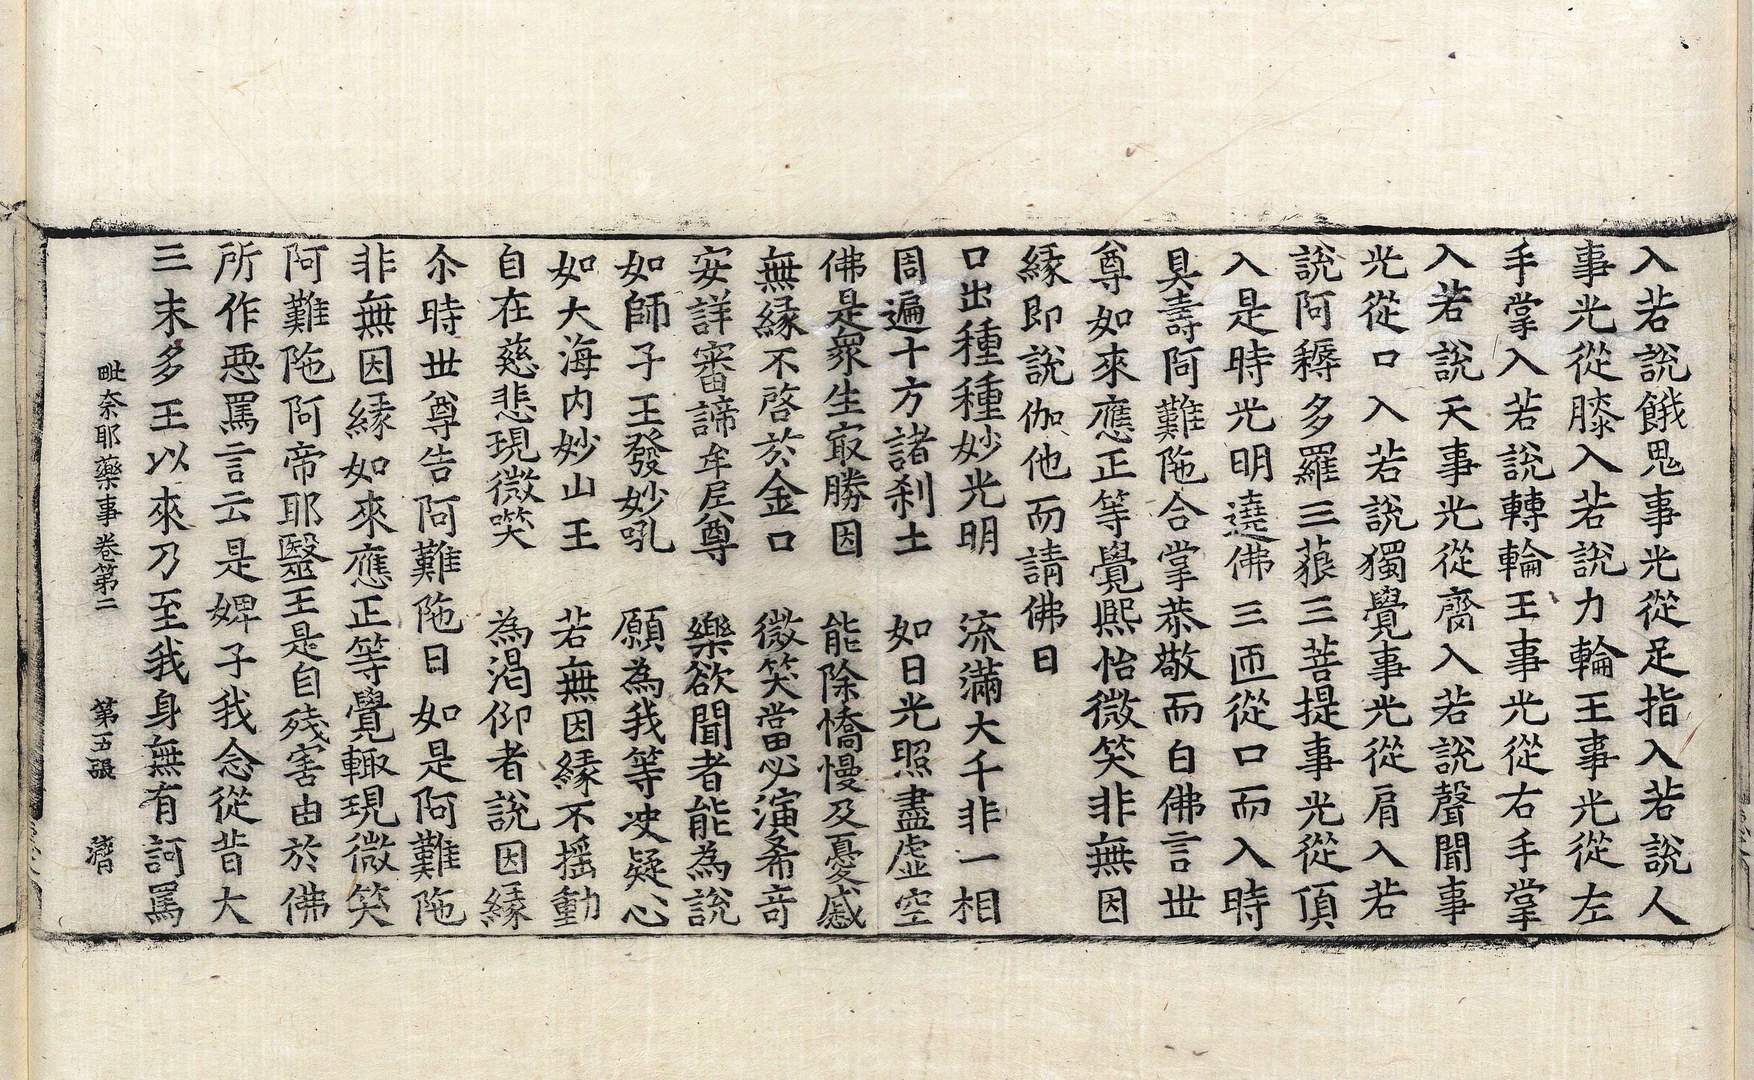 入若說餓鬼事光從足指入若說人
事光從膝入若說力輪王事光從左
手掌入若說轉輪王事光從右手掌
入若說天事光從齎入若說聲聞事
光從口入若說獨覺事光從肩入若
說阿耨多羅三藐三菩提事光從頂
入是時光明遶佛三帀從口而入時
具壽阿難陁合掌恭敬而白佛言世
尊如來應正等覺熙怡微笑非無因
緣即說伽他而請佛曰
口出種種妙光明　流滿大千非一相
周遍十方諸刹土　如日光照盡虛空
佛是衆生㝡勝因　能除憍慢及憂慼
無緣不啓於金口　微笑當必演希奇
安詳審諦牟尼尊　樂欲聞者能為說
如師子王發妙吼　願為我等决疑心
如大海內妙山王　若無因緣不搖動
自在慈悲現微笑　為渴仰者說因緣
尒時世尊告阿難陁曰如是阿難陁
非無因緣如來應正等覺輙現微笑
阿難陁阿帝耶醫王是自殘害由於佛
所作惡罵言云是婢子我念從昔大
三末多王以來乃至我身無有訶罵
毗奈耶藥事卷第二　第五張　濟